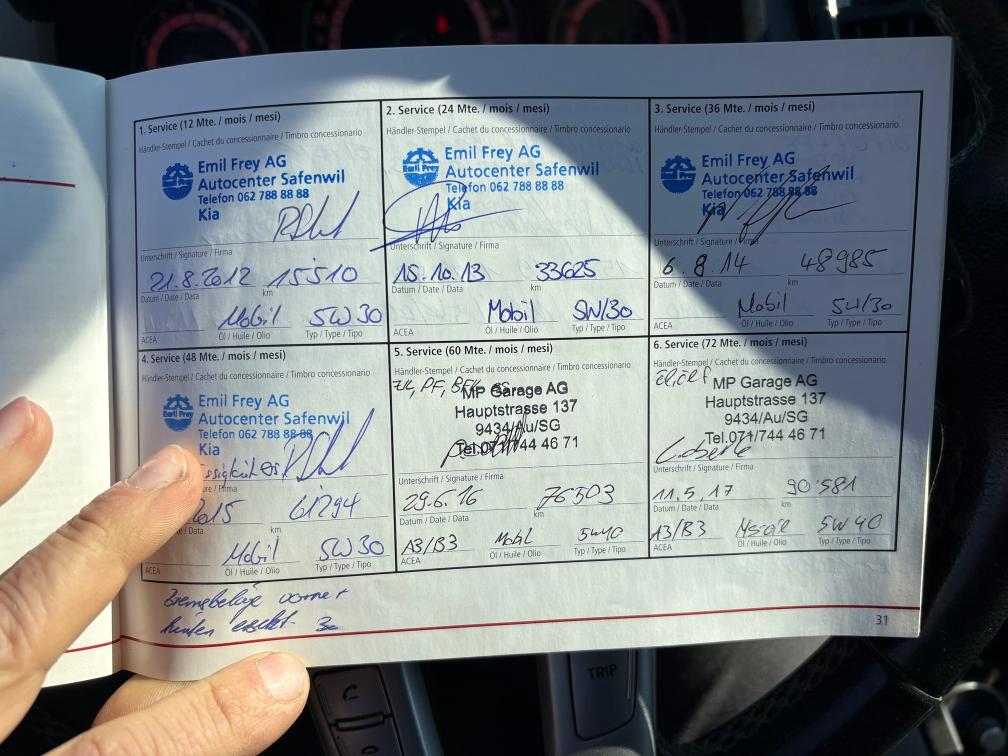 1. Service (12 Mte. / mois / mesi)
Händler-Stempel / Cachet du concessionnaire / Timbro concessionario
Emil Frey AG
Autocenter Safenwil
Telefon 062 788 88 88
Kia
Unterschrift / Signature / Firma
21.8.2012 15510
Datum / Date / Data km
Mobil 5W30
ACEA Öl / Huile / Olio Typ / Type / Tipo
2. Service (24 Mte. / mois / mesi)
Händler-Stempel / Cachet du concessionnaire / Timbro concessionario
Emil Frey
Emil Frey AG
Autocenter Safenwil
Telefon 062 788 88 88
Kia
Unterschrift / Signature / Firma
15.10.13 33625
Datum / Date / Data km
Mobil 5W/30
ACEA Öl / Huile / Olio Typ / Type / Tipo
3. Service (36 Mte. / mois / mesi)
Händler-Stempel / Cachet du concessionnaire / Timbro concessionario
Emil Frey AG
Autocenter Safenwil
Telefon 062 788 88 88
Kia
Unterschrift / Signature / Firma
6.8.14 48985
Datum / Date / Data km
Mobil 5W/30
ACEA Öl / Huile / Olio Typ / Type / Tipo
4. Service (48 Mte. / mois / mesi)
Händler-Stempel / Cachet du concessionnaire / Timbro concessionario
Emil Frey AG
Autocenter Safenwil
Telefon 062 788 88 88
Kia
ure / Firma
2015 61294
/ Data km
Mobil 5W30
ACEA Öl / Huile / Olio Typ / Type / Tipo
5. Service (60 Mte. / mois / mesi)
Händler-Stempel / Cachet du concessionnaire / Timbro concessionario
PF,
MP Garage AG
Hauptstrasse 137
9434/Au/SG
Tel.071/744 46 71
Unterschrift / Signature / Firma
29.6.16 76503
Datum / Date / Data km
A3/B3 Mobil 5W40
ACEA Öl / Huile / Olio Typ / Type / Tipo
6. Service (72 Mte. / mois / mesi)
Händler-Stempel / Cachet du concessionnaire / Timbro concessionario
MP Garage AG
Hauptstrasse 137
9434/Au/SG
Tel.071/744 46 71
Unterschrift / Signature / Firma
11.5.17 90'581
Datum / Date / Data km
A3/B3 5W40
ACEA Öl / Huile / Olio Typ / Type / Tipo
Bremsbeläge vorne +
hinten ersetzt
31
TRIP